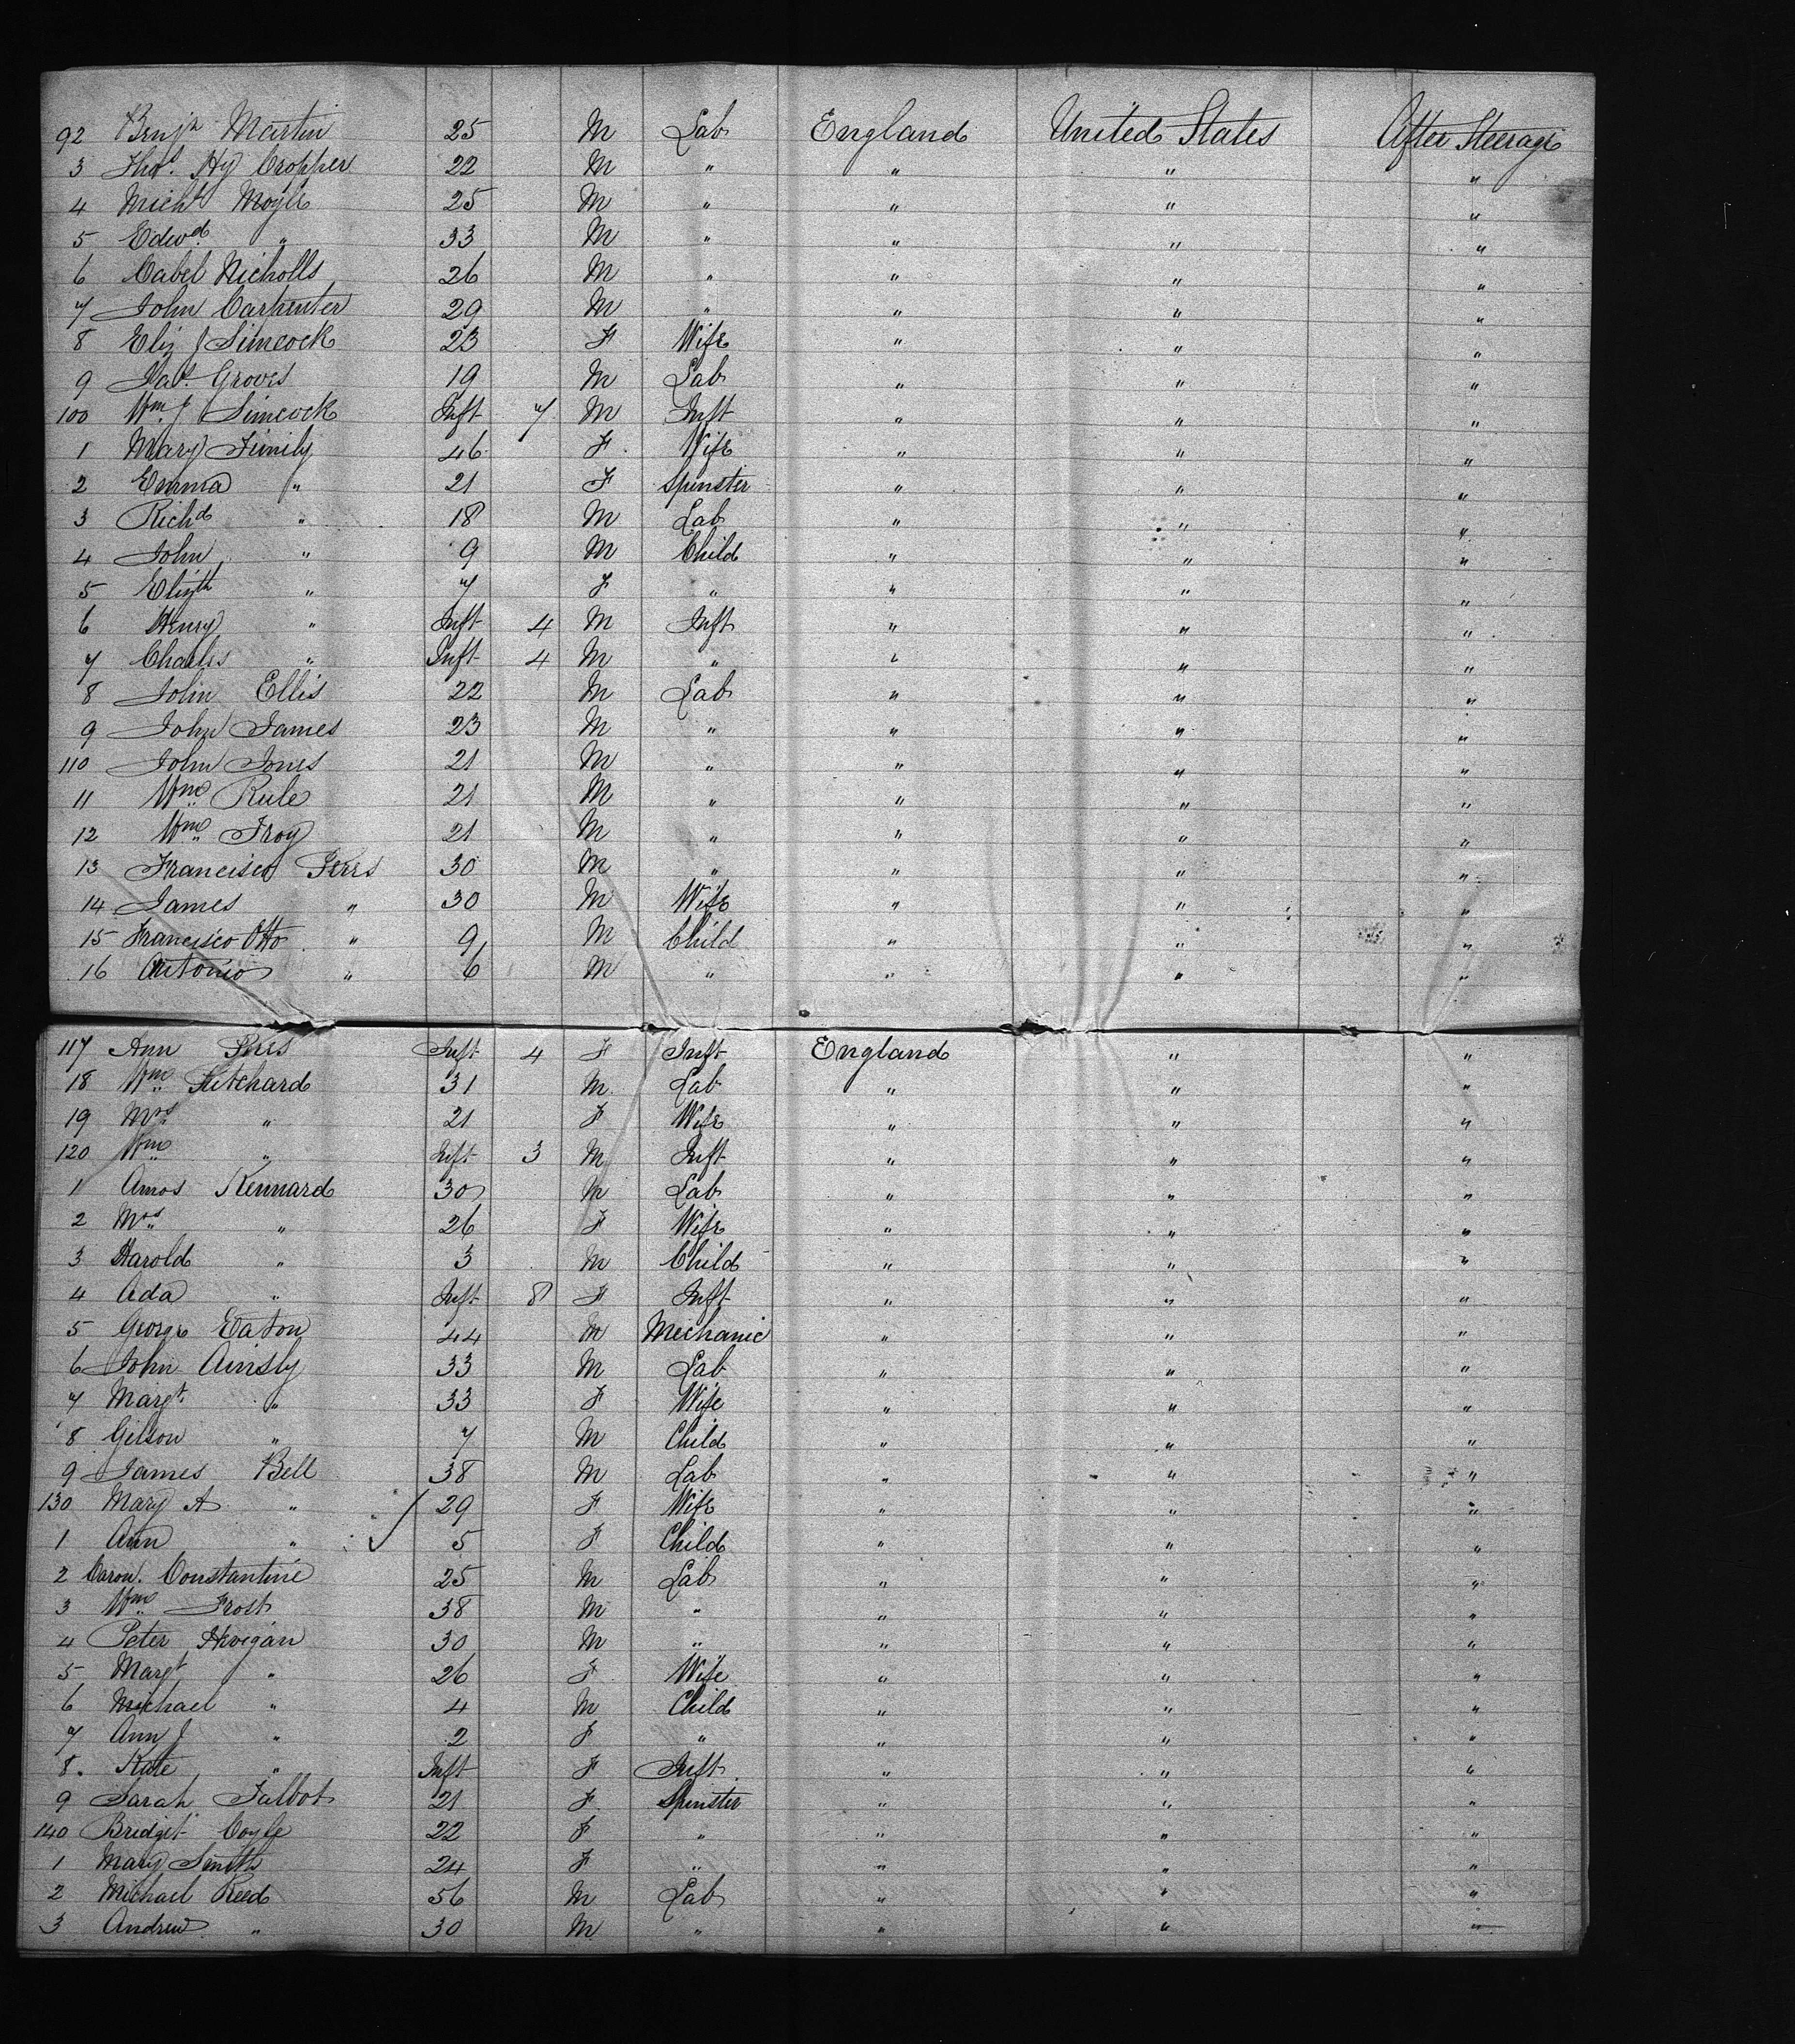 92 Benjn Martin 25 M Lab England United States After Steerage
3 Thos. Hy Cropper 22 M " " " "
4 Michl Moyle 25 M " " " "
5 Edwd. " 33 M " " " "
6 Cabel Nicholls 26 M " " " "
7 John Carpenter 29 M " " " "
8 Eliz J Simcock 23 F Wife " " "
9 Jas. Groves 19 M Lab " " "
100 Wm J Simcock Inft 7 M Inft " " "
1 Mary 46 F Wife " " "
2 Emma " 21 F Spinster " " "
3 Richd " 18 M Lab " " "
4 John " 9 M Child " " "
5 Elizth " 7 F " " " "
6 Henry " Inft 4 M Inft " " "
7 Charles " Inft 4 M " " " "
8 John Ellis 22 M Lab " " "
9 John James 23 M " " " "
110 John Jones 21 M " " " "
11 Wm Rule 21 M " " " "
12 Wm Troy 21 M " " " "
13 Francisco Peres 30 M " " " "
14 James " 30 M Wife " " "
15 Francisco Otto " 9 M Child " " "
16 Antonio " 6 M " " " "
117 Ann Peres Inft 4 F Inft England " "
18 Wm Pritchard 31 M Lab " " "
19 Mrs " 21 F Wife " " "
120 Wm " Inft 3 M Inft " " "
1 Amos Kennard 30 M Lab " " "
2 Mrs " 26 F Wife " " "
3 Harold " 3 M Child " " "
4 Ada " Inft 8 F Inft " " "
5 George Eaton 44 M Mechanic " " "
6 John Ainsly 33 M Lab " " "
7 Margt " 33 F Wife " " "
8 Gilson " 7 M Child " " "
9 James Bell 38 M Lab " " "
130 Mary A " 29 F Wife " " "
1 Ann " 5 F Child " " "
2 Constantine 25 M Lab " " "
3 Wm Frost 38 M " " " "
4 Peter 30 M " " " "
5 Margt " 26 F Wife " " "
6 Michael " 4 M Child " " "
7 Ann J " 2 F " " " "
8 Kate " Inft F Inft " " "
9 Sarah Talbot 21 F Spinster " " "
140 Bridget Coyle 22 F " " " "
1 Mary Smith 24 F " " " "
2 Michael Reed 56 M Lab " " "
3 Andrew " 30 M " " " "